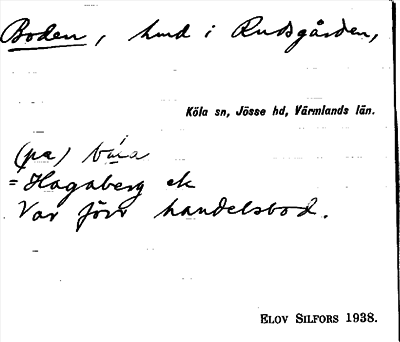 Boden, hmd i Rudsgården,
Köla sn, Jösse hd, Värmlands län.
(pa)
= Hagaberg ek
Var förr handelsbod.
ELOV SILFORS 1938.